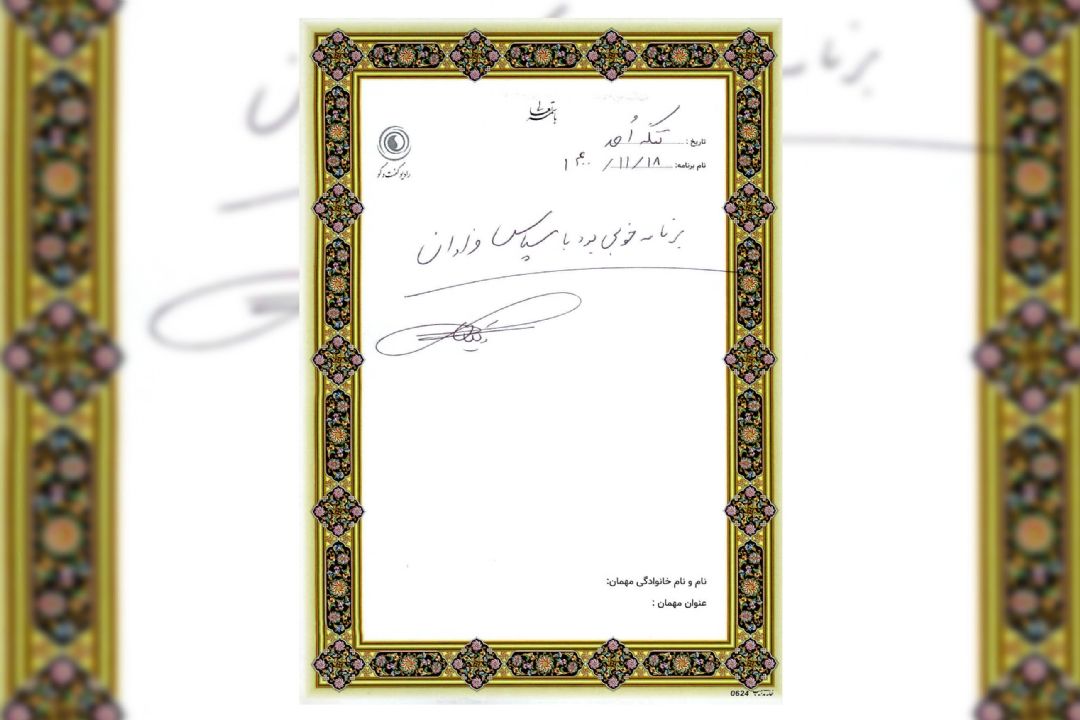 باسمه تعالی
تاریخ: تنگه اُحد
نام برنامه: ۱۴۰۰/۱۱/۱۸
رادیو گفت و گو
برنامه خوبی بود با سپاس فراوان
نام و نام خانوادگی مهمان:
عنوان مهمان :
0624